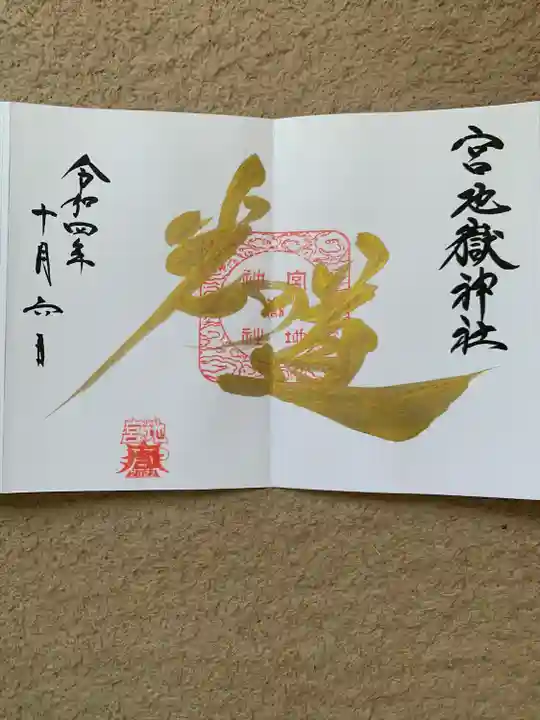 宮地嶽神社
光の道
宮地嶽神社
宮地嶽
令和四年
十月六日